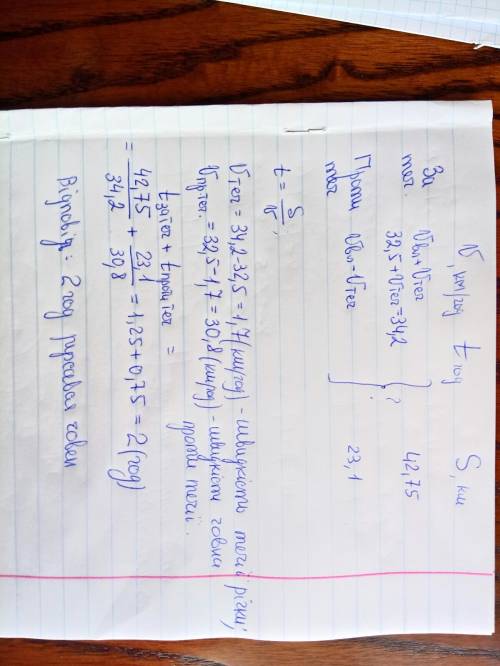 V, км/год t год S, км
За теч. Vвл+Vтеч 32,5+Vтеч=34,2 } ? 42,75
Проти теч Vвл-Vтеч 23,1
t = S/V,
Vтеч = 34,2-32,5 = 1,7 (км/год) - швидкість течії річки;
Vпр.теч. = 32,5-1,7 = 30,8 (км/год) - швидкість човна
проти течії.
tза теч + tпроти теч =
= 42,75/34,2 + 23,1/30,8 = 1,25 + 0,75 = 2 (год)
Відповідь: 2 год рухався човен